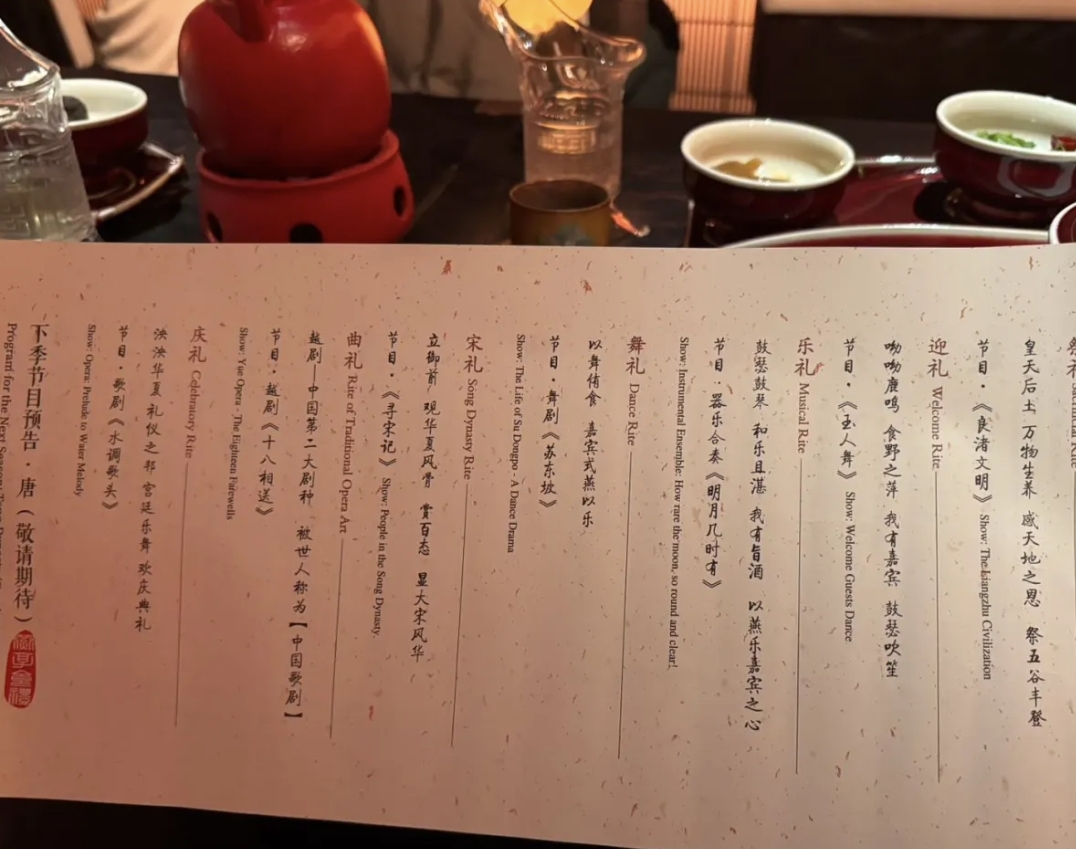 祭礼
皇天后土 万物生养 感天地之恩 祭五谷丰登
节目·《良渚文明》 Show: The Liangzhu Civilization
迎礼 Welcome Rite
呦呦鹿鸣 食野之苹 我有嘉宾 鼓瑟吹笙
节目·《玉人舞》 Show: Welcome Guests Dance
乐礼 Musical Rite
鼓瑟鼓琴 和乐且湛 我有旨酒 以燕乐嘉宾之心
节目·器乐合奏《明月几时有》
Show: Instrumental Ensemble: How rare the moon, so round and clear!
舞礼 Dance Rite
以舞侑食 嘉宾式燕以乐
节目·舞剧《苏东坡》
Show: The Life of Su Dongpo - A Dance Drama
宋礼 Song Dynasty Rite
立御前 观华夏风骨 赏百态 显大宋风华
节目·《寻宋记》 Show: People in the Song Dynasty
曲礼 Rite of Traditional Opera Art
越剧—中国第二大剧种 被世人称为【中国歌剧】
节目·越剧《十八相送》
Show: Yue Opera - The Eighteen Farewells
庆礼 Celebratory Rite
泱泱华夏 礼仪之邦 宫廷乐舞 欢庆典礼
节目·歌剧《水调歌头》
Show: Opera: Prelude to Water Melody
下季节目预告·唐(敬请期待)
Program for the Next Season: Tang Dynasty